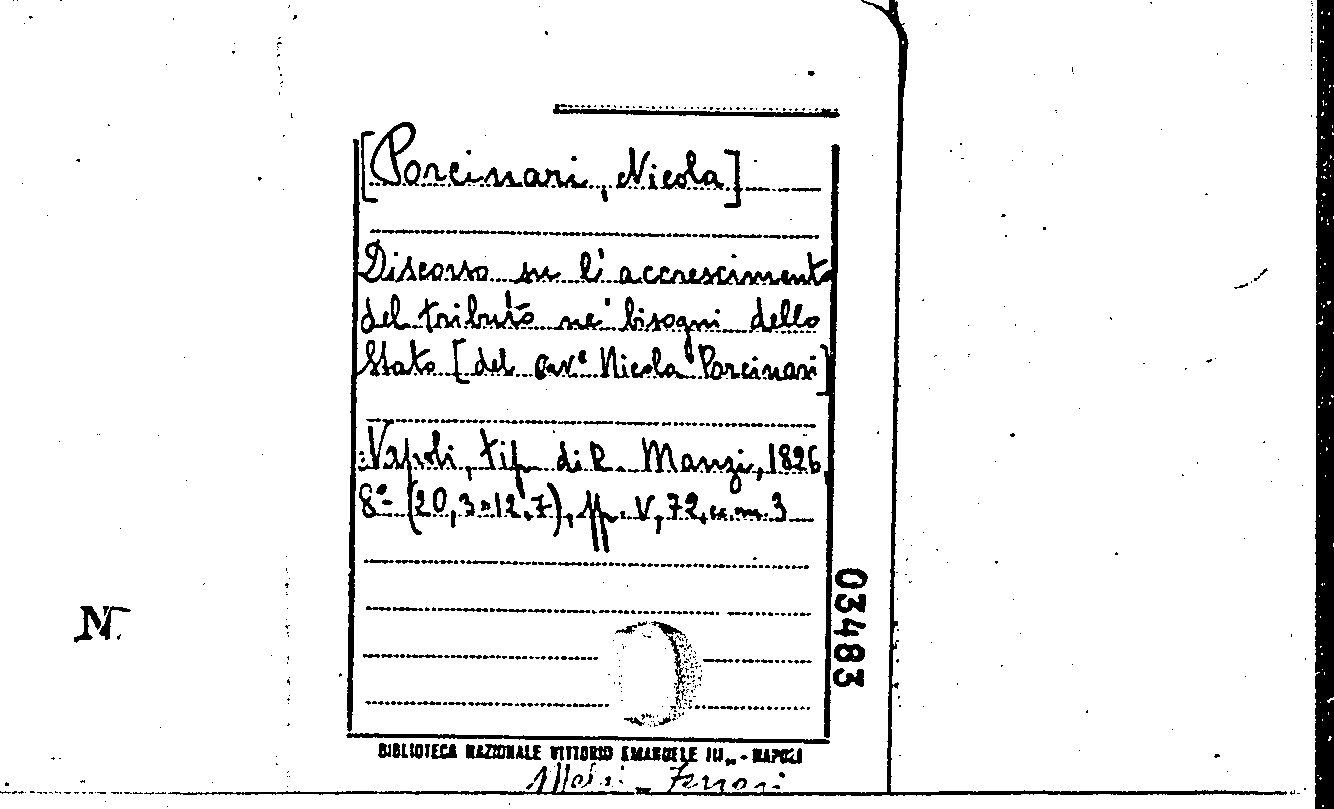 [Porcinari, Nicola]
Discorso su l'accrescimento
del tributo ne' bisogni dello
Stato [del cav.e Nicola Porcinari]
Napoli, tip. di R. Manzi, 1826
8º (20,3×12,7), pp. V, 72, cc.nn. 3
03483
N.
BIBLIOTECA NAZIONALE VITTORIO EMANUELE III,, - NAPOLI
Ferrari